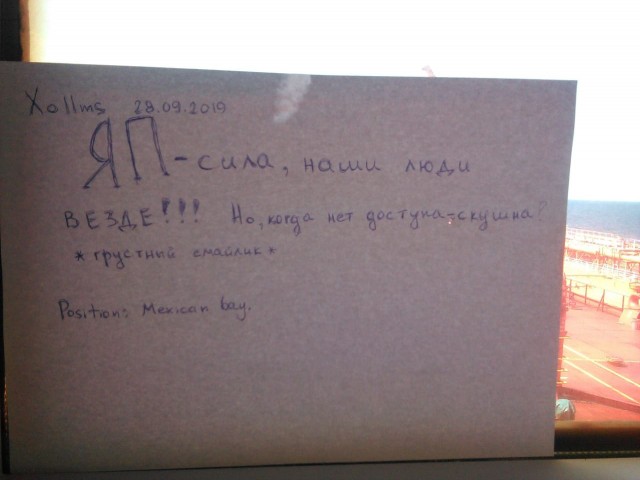 Xollms 28.09.2019
ЯП-сила, наши люди
ВЕЗДЕ!!! Но, когда нет доступа-скушна?
*грустный смайлик*
Position: Mexican bay.